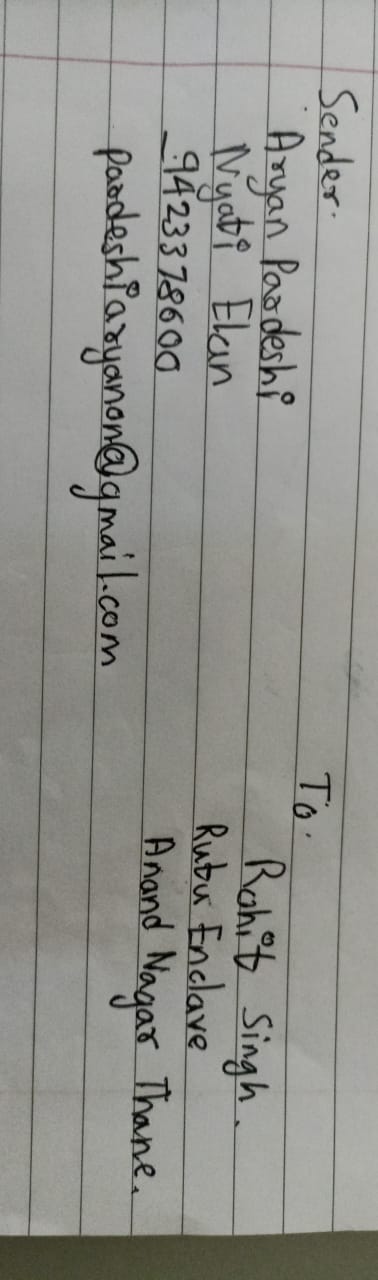 Sender.
Aryan Pardeshi
Nyati Elan
9423378600
pardeshiaryanon@gmail.com
To.
Rohit Singh.
Rutu Enclave
Anand Nagar Thane.